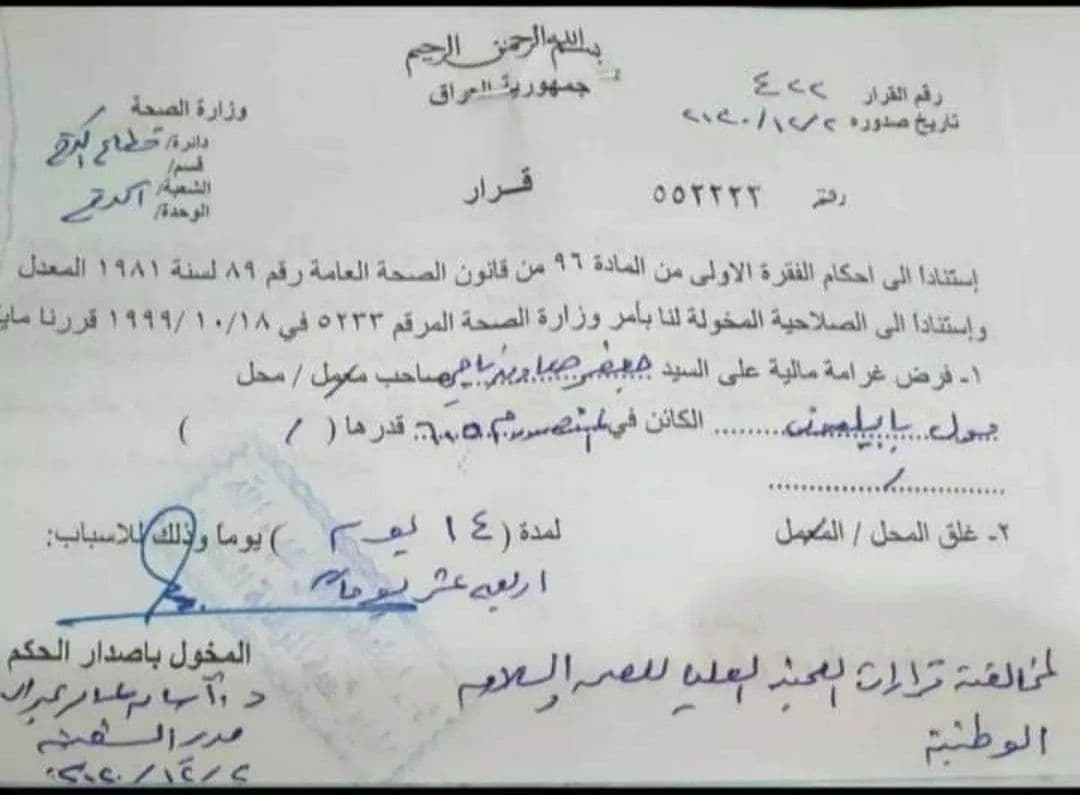 بسم الله الرحمن الرحيم
جمهورية العراق
وزارة الصحة
دائرة/ قطاع الكرخ
قسم/
الشعبة/
الوحدة/
رقم القرار ٤٢٢
تاريخ صدوره ٢٠٢٠/١٢/٢
قرار
رقم ٥٥٢٢٢٢
إستنادا الى احكام الفقرة الاولى من المادة ٩٦ من قانون الصحة العامة رقم ٨٩ لسنة ١٩٨١ المعدل
وإستنادا الى الصلاحية المخولة لنا بأمر وزارة الصحة المرقم ٥٢٣٣ في ١٩٩٩/١٠/١٨ قررنا
١- فرض غرامة مالية على السيد جعفر صاحب معمل / محل
مول بابيلون الكائن في المنصور م ٦٠٥ قدرها ( / )
/
٢- غلق المحل / المعمل لمدة ( ١٤ يوم ) يوما وذلك للاسباب:
اربعة عشر يوما
لمخالفته قرارات اللجنة العليا للصحة والسلامة
الوطنية
المخول باصدار الحكم
د.
مدير الشعبة
٢٠٢٠/١٢/٢